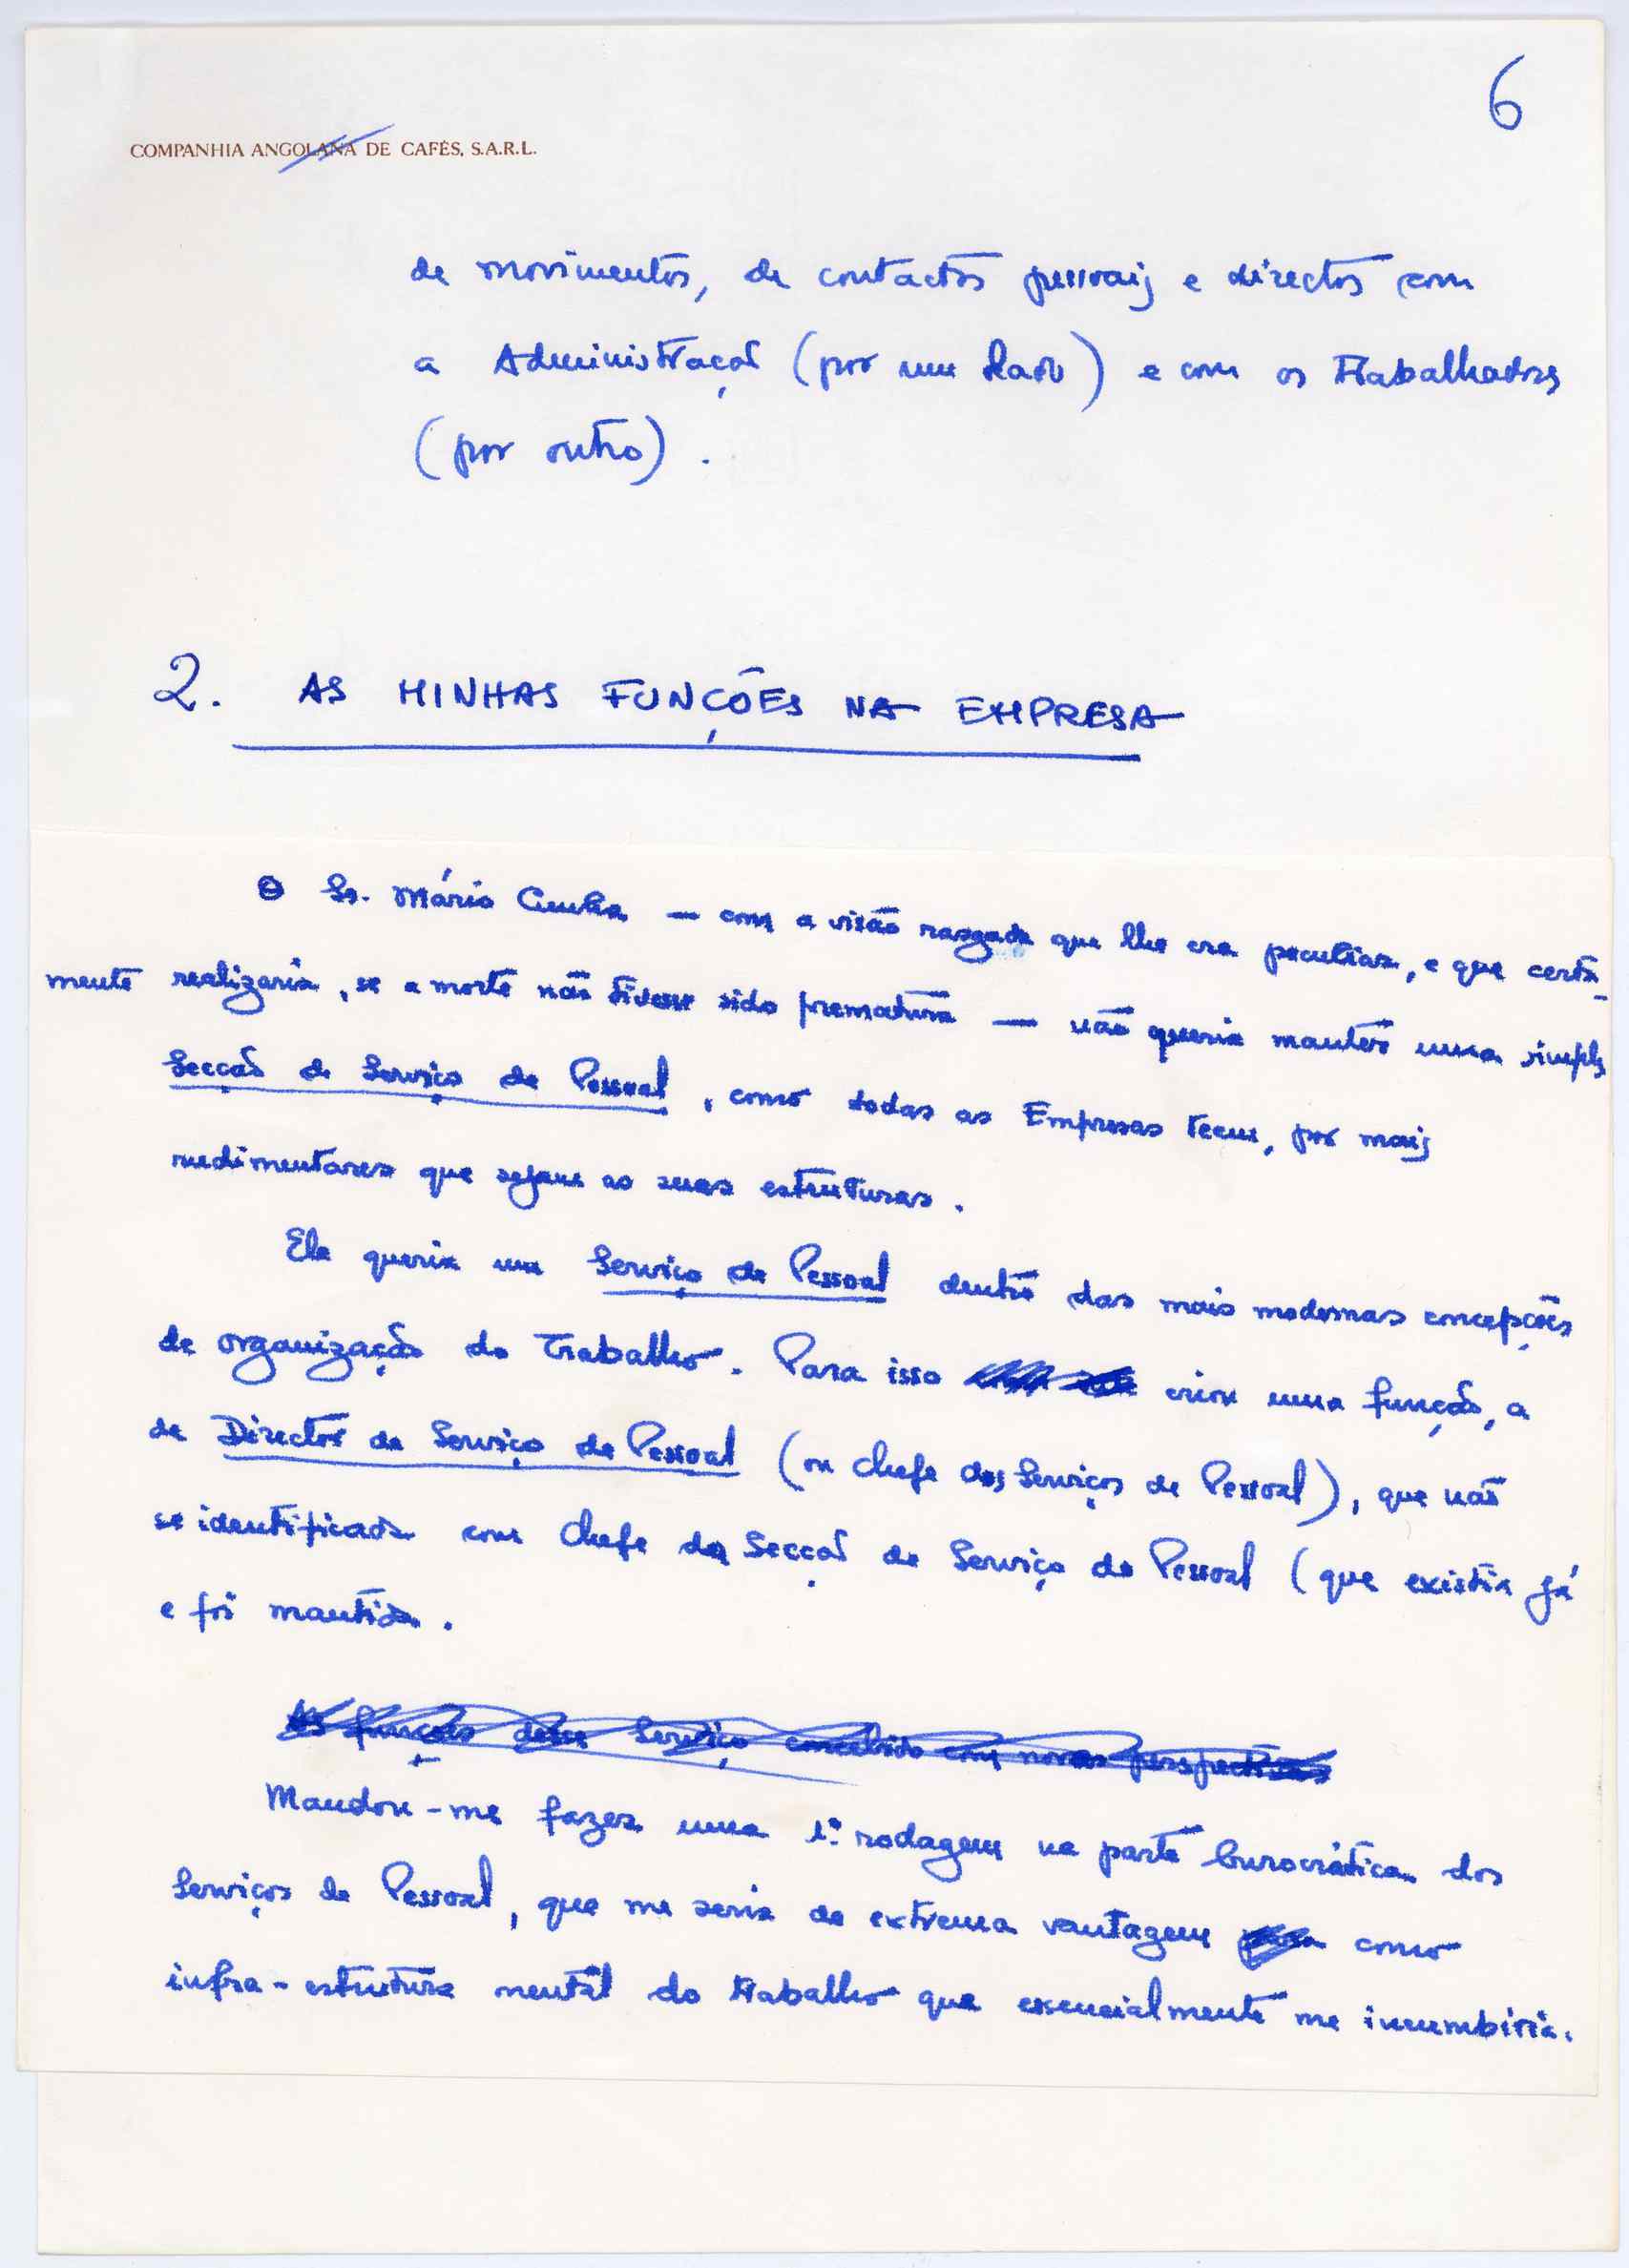 6
COMPANHIA ANGOLANA DE CAFÉS, S.A.R.L.
de movimentos, de contactos pessoais e directos com
a Administração (por um lado) e com os Trabalhadores
(por outro).
2. AS MINHAS FUNÇÕES NA EMPRESA
O Sr. Mário Cunha — com a visão rasgada que lhe era peculiar, e que certa-
mente realizaria, se a morte não tivesse sido prematura — não queria manter uma simples
Secção de Serviço de Pessoal, como todas as Empresas teem, por mais
rudimentares que sejam as suas estruturas.
Ele queria um Serviço de Pessoal dentro das mais modernas concepções
de organização do Trabalho. Para isso criou uma função, a
de Director de Serviço de Pessoal (ou Chefe dos Serviços de Pessoal), que não
se identificada com Chefe da Secção de Serviço de Pessoal (que existia já
e foi mantida.
As funções desse Serviço concebido com novas perspectivas
Mandou-me fazer uma 1ª rodagem na parte burocrática dos
Serviços de Pessoal, que me seria de extrema vantagem para como
infra-estrutura mental do trabalho que essencialmente me incumbiria.